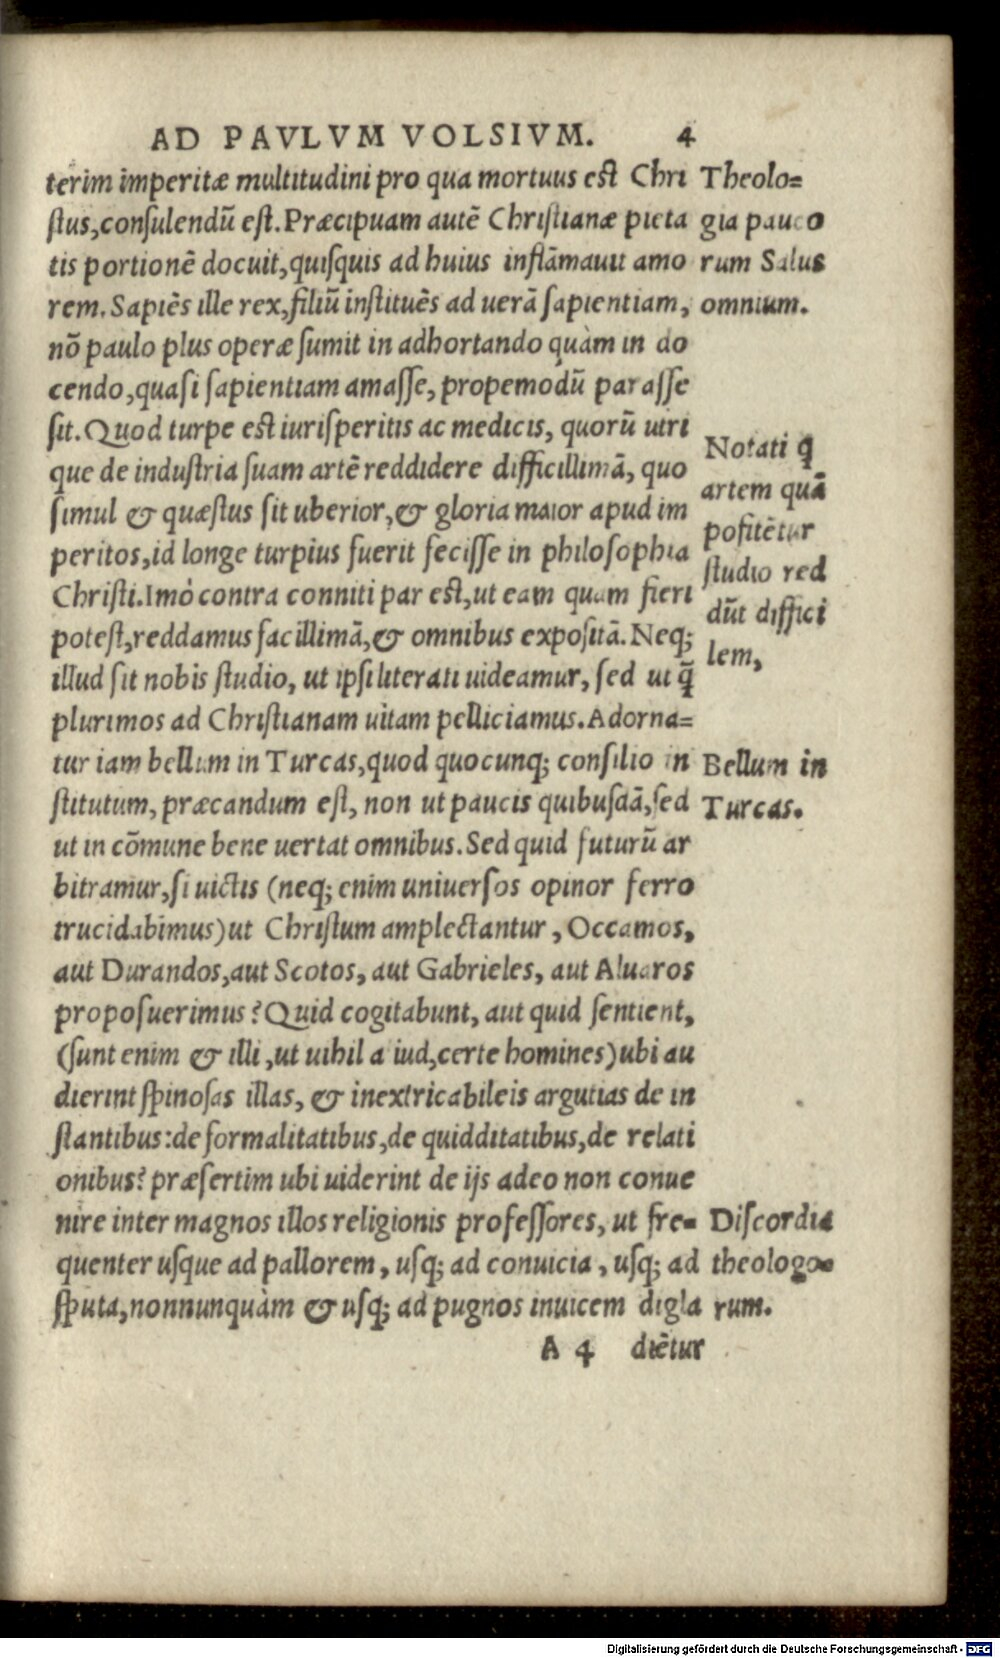 AD PAVLVM VOLSIVM. 4
terim imperitæ multitudini pro qua mortuus est Chri
stus,consulendũ est.Præcipuam autẽ Christianæ pieta
tis portionẽ docuit,quisquis ad huius inflãmauit amo
rem.Sapiẽs ille rex,filiũ instituẽs ad uerã sapientiam,
nõ paulo plus operæ sumit in adhortando quàm in do
cendo,quasi sapientiam amasse, propemodũ parasse
sit.Quod turpe est iurisperitis ac medicis, quorũ utri
que de industria suam artẽ reddidere difficillimã, quo
simul & quæstus sit uberior,& gloria maior apud im
peritos,id longe turpius fuerit fecisse in philosophia
Christi.Imò contra conniti par est,ut eam quam fieri
potest,reddamus facillimã,& omnibus expositã.Neq;
illud sit nobis studio, ut ipsi literati uideamur, sed ut q̃
plurimos ad Christianam uitam pelliciamus.Adorna=
tur iam bellum in Turcas,quod quocunq; consilio in
stitutum, præcandum est, non ut paucis quibusdã,sed
ut in cõmune bene uertat omnibus.Sed quid futurũ ar
bitramur,si uictis (neq; enim uniuersos opinor ferro
trucidabimus)ut Christum amplectantur, Occamos,
aut Durandos,aut Scotos, aut Gabrieles, aut Aluaros
proposuerimus? Quid cogitabunt, aut quid sentient,
(sunt enim & illi,ut uihil aliud,certe homines)ubi au
dierint spinosas illas, & inextricabileis argutias de in
stantibus:de formalitatibus,de quidditatibus,de relati
onibus? præsertim ubi uiderint de ijs adeo non conue
nire inter magnos illos religionis professores, ut fre=
quenter usque ad pallorem, usq; ad conuicia, usq; ad
sputa,nonnunquàm & usq; ad pugnos inuicem digla
A 4 diẽtur
Theolo=
gia pauco
rum Salus
omnium.
Notati q
artem quã
pofitẽtur
studio red
dũt diffici
lem,
Bellum in
Turcas.
Discordia
theologo=
rum.
Digitalisierung gefördert durch die Deutsche Forschungsgemeinschaft - DFG